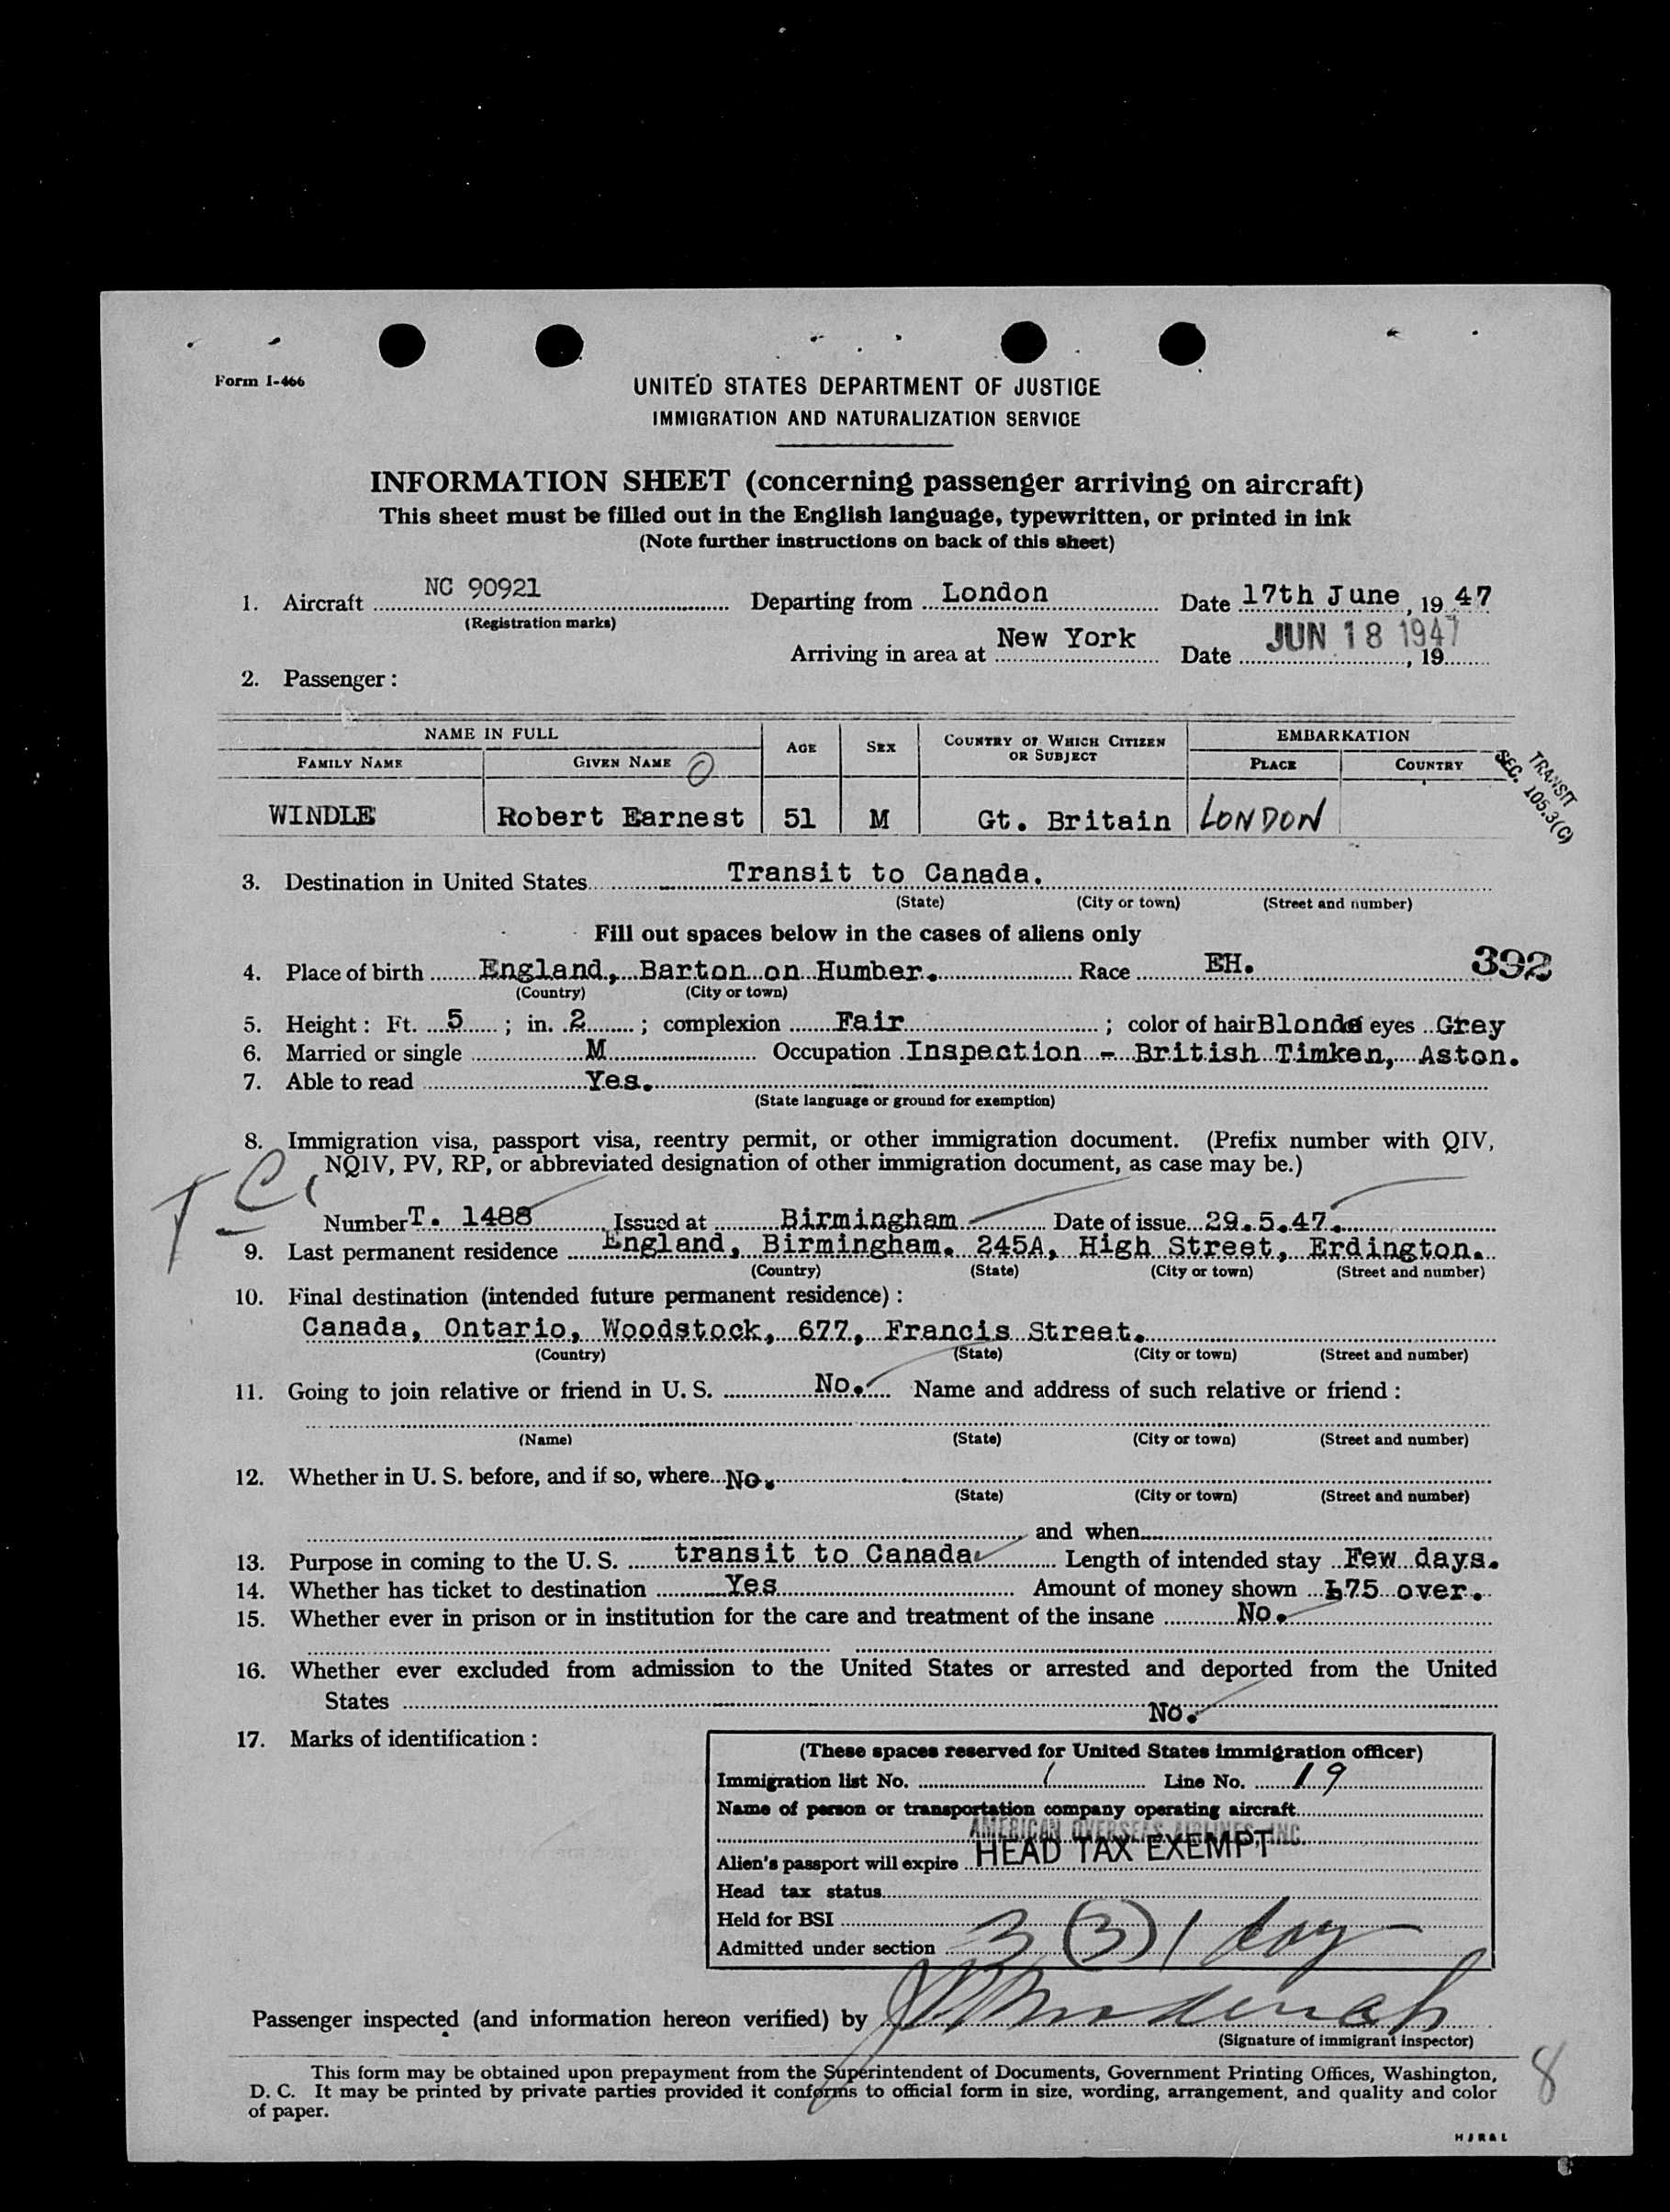 Form I-466
UNITED STATES DEPARTMENT OF JUSTICE
IMMIGRATION AND NATURALIZATION SERVICE
INFORMATION SHEET (concerning passenger arriving on aircraft)
This sheet must be filled out in the English language, typewritten, or printed in ink
(Note further instructions on back of this sheet)
1. Aircraft NC 90921 Departing from London Date 17th June, 19 47
(Registration marks)
Arriving in area at New York Date JUN 18 1947, 19
2. Passenger:
NAME IN FULL AGE SEX COUNTRY OF WHICH CITIZEN OR SUBJECT EMBARKATION
FAMILY NAME GIVEN NAME PLACE COUNTRY
TRANSIT
SEC. 105.3(C)
WINDLE Robert Earnest 51 M Gt. Britain LONDON
3. Destination in United States Transit to Canada.
(State) (City or town) (Street and number)
Fill out spaces below in the cases of aliens only
392
4. Place of birth England, Barton on Humber. Race EH.
(Country) (City or town)
5. Height: Ft. 5; in. 2; complexion Fair; color of hair Blonde eyes Grey
6. Married or single M Occupation Inspection - British Timken, Aston.
7. Able to read Yes.
(State language or ground for exemption)
8. Immigration visa, passport visa, reentry permit, or other immigration document. (Prefix number with QIV,
NQIV, PV, RP, or abbreviated designation of other immigration document, as case may be.)
Number T. 1488 Issued at Birmingham Date of issue 29.5.47.
9. Last permanent residence England, Birmingham. 245A, High Street, Erdington.
(Country) (State) (City or town) (Street and number)
10. Final destination (intended future permanent residence):
Canada, Ontario, Woodstock, 677, Francis Street.
(Country) (State) (City or town) (Street and number)
11. Going to join relative or friend in U. S. No. Name and address of such relative or friend:
(Name) (State) (City or town) (Street and number)
12. Whether in U. S. before, and if so, where No.
(State) (City or town) (Street and number)
and when
13. Purpose in coming to the U. S. transit to Canada Length of intended stay Few days.
14. Whether has ticket to destination Yes Amount of money shown £75 over.
15. Whether ever in prison or in institution for the care and treatment of the insane No.
16. Whether ever excluded from admission to the United States or arrested and deported from the United
States No.
17. Marks of identification:
(These spaces reserved for United States immigration officer)
Immigration list No. 1 Line No. 19
Name of person or transportation company operating aircraft
AMERICAN OVERSEAS AIRLINES, INC.
Alien's passport will expire HEAD TAX EXEMPT
Head tax status
Held for BSI
Admitted under section 3 (3) 1 day
Passenger inspected (and information hereon verified) by
(Signature of immigrant inspector)
This form may be obtained upon prepayment from the Superintendent of Documents, Government Printing Offices, Washington,
D. C. It may be printed by private parties provided it conforms to official form in size, wording, arrangement, and quality and color
of paper.
8
HJR&L